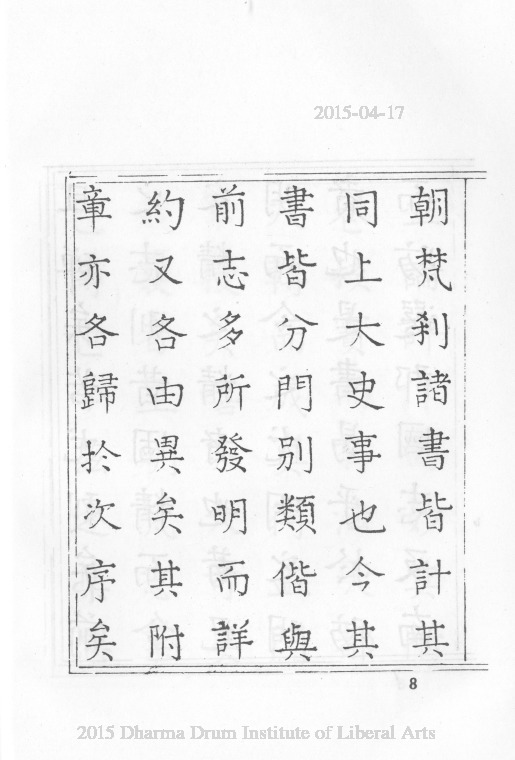 2015-04-17
朝梵刹諸書皆計其
同上大史事也今其
書皆分門别類偕與
前志多所發明而詳
約又各由異矣其附
章亦各歸於次序矣
8
2015 Dharma Drum Institute of Liberal Arts